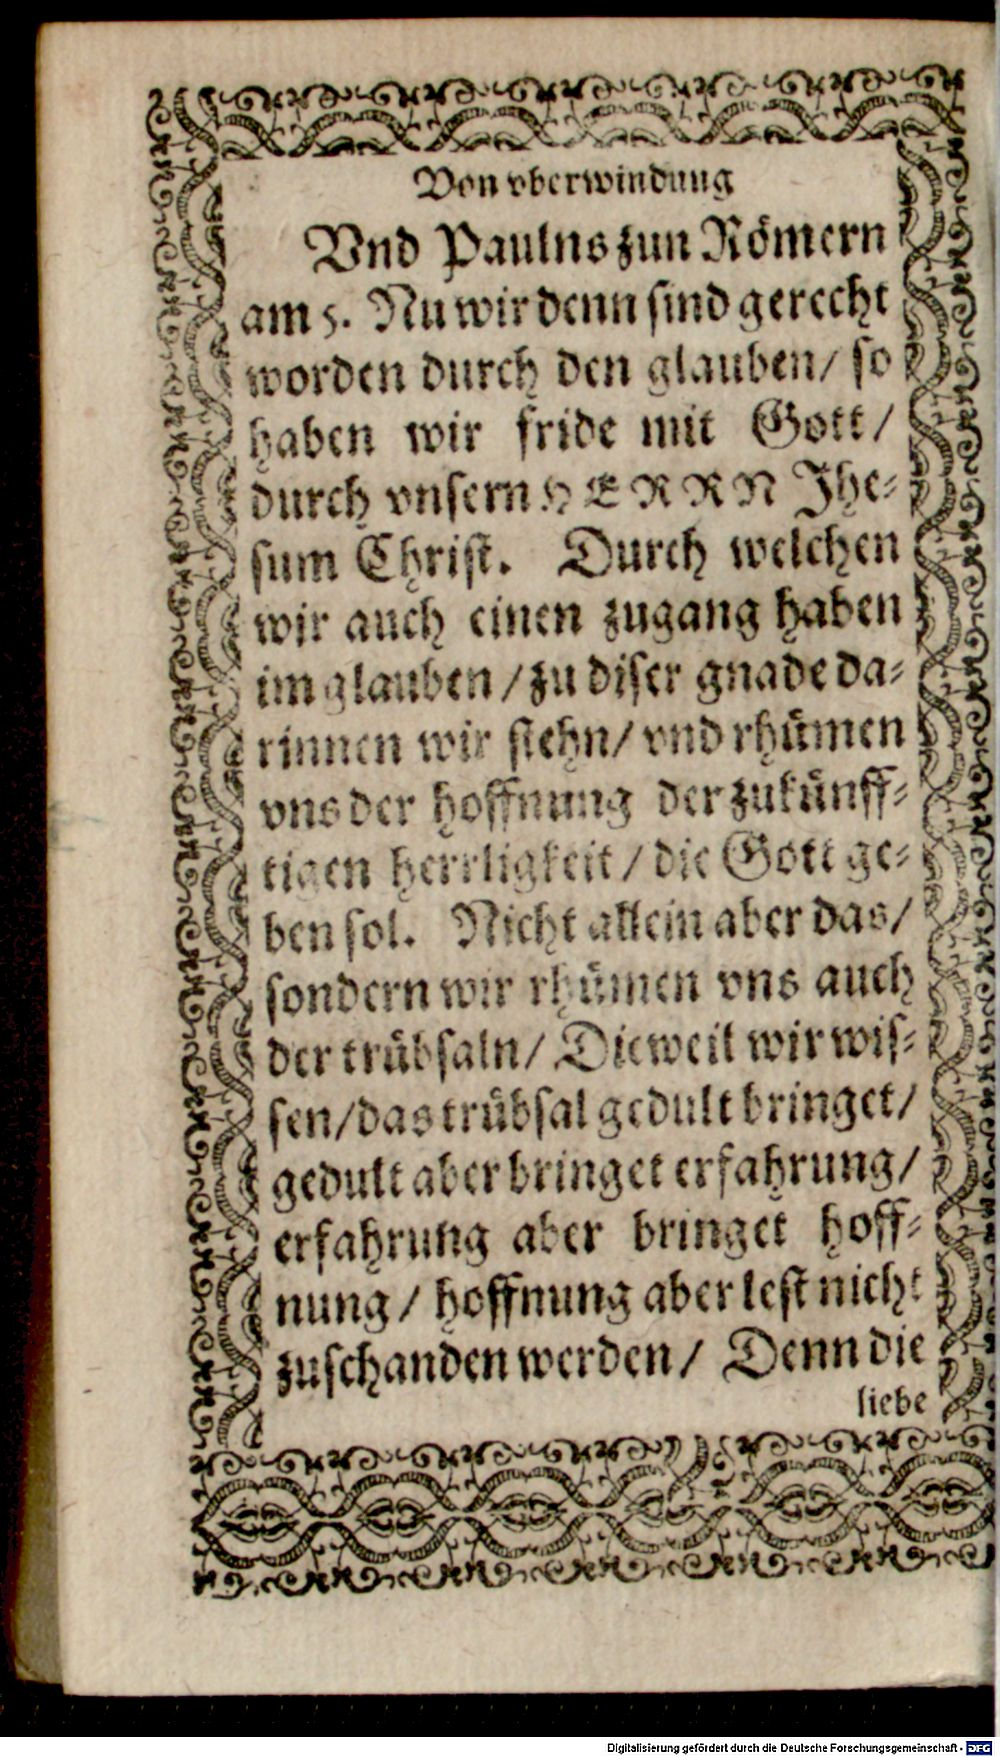 Von vberwindung
Vnd Paulns zun Römern
am 5. Nu wir denn sind gerecht
worden durch den glauben/ so
haben wir fride mit Gott/
durch vnsern HERRN Jhe-
sum Christ. Durch welchen
wir auch einen zugang haben
im glauben / zu diser gnade da-
rinnen wir stehn/ vnd rhümen
vns der hoffnung der zukünff-
tigen herrligkeit / die Gott ge-
ben sol. Nicht allein aber das/
sondern wir rhümen vns auch
der trübsaln/ Dieweil wir wis-
sen/das trübsal gedult bringet/
gedult aber bringet erfahrung/
erfahrung aber bringet hoff-
nung / hoffnung aber lest nicht
zuschanden werden/ Denn die
liebe
Digitalisierung gefördert durch die Deutsche Forschungsgemeinschaft - DFG